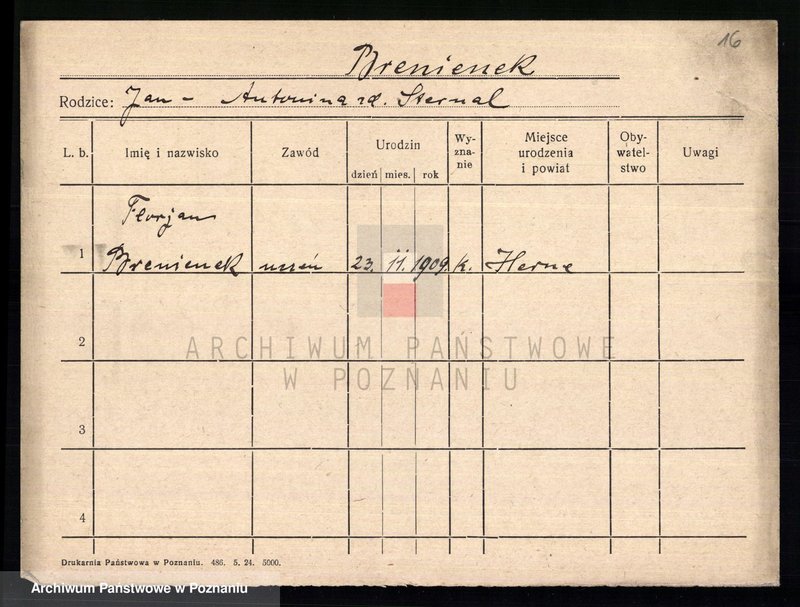 16
Brenienek
Rodzice: Jan - Antonina zd. Sternal
L. b. Imię i nazwisko Zawód Urodzin dzień mies. rok Wy-zna-nie Miejsce urodzenia i powiat Oby-watel-stwo Uwagi
Florjan
1 Brenienek uczeń 23. 11. 1909. k. Herne
2
ARCHIWUM PAŃSTWOWE
W POZNANIU
3
4
Drukarnia Państwowa w Poznaniu. 486. 5. 24. 5000.
Archiwum Państwowe w Poznaniu